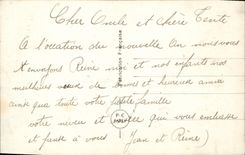 Cher Oncle et chère Tante
A l'occasion du nouvelle An nous vous
envoyons Reine moi et nos enfants nos
meilleurs vœux de bonne et heureuse année
ainsi que toute votre petite famille
votre neveu et nièce qui vous embrasse
et pense à vous Jean et Reine
PC
PARIS